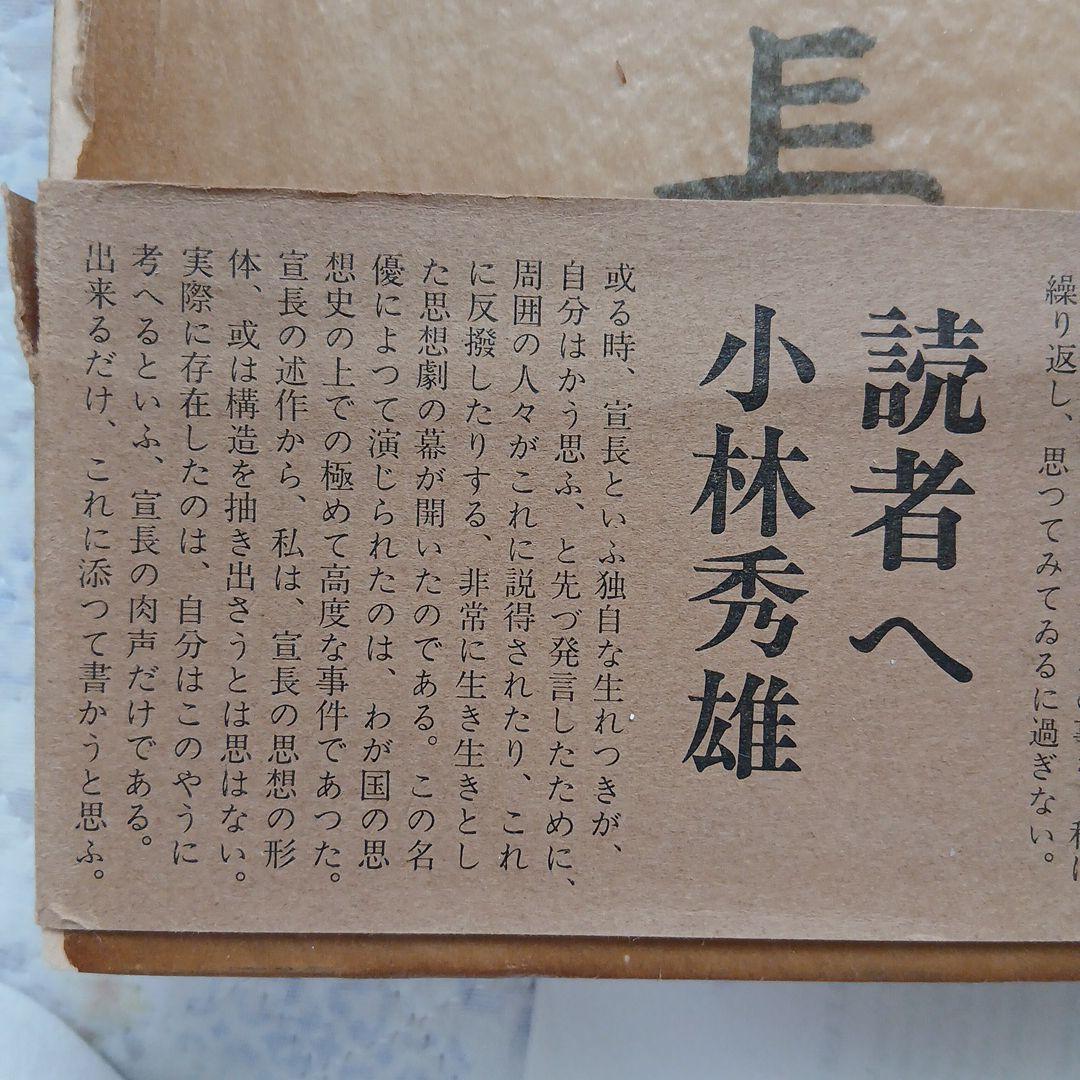 長
繰り返し、思つてみてゐるに過ぎない。
読者へ
小林秀雄
或る時、宣長といふ独自な生れつきが、
自分はかう思ふ、と先づ発言したために、
周囲の人々がこれに説得されたり、これ
に反撥したりする、非常に生き生きとし
た思想劇の幕が開いたのである。この名
優によつて演じられたのは、わが国の思
想史の上での極めて高度な事件であつた。
宣長の述作から、私は、宣長の思想の形
体、或は構造を抽き出さうとは思はない。
実際に存在したのは、自分はこのやうに
考へるといふ、宣長の肉声だけである。
出来るだけ、これに添つて書かうと思ふ。